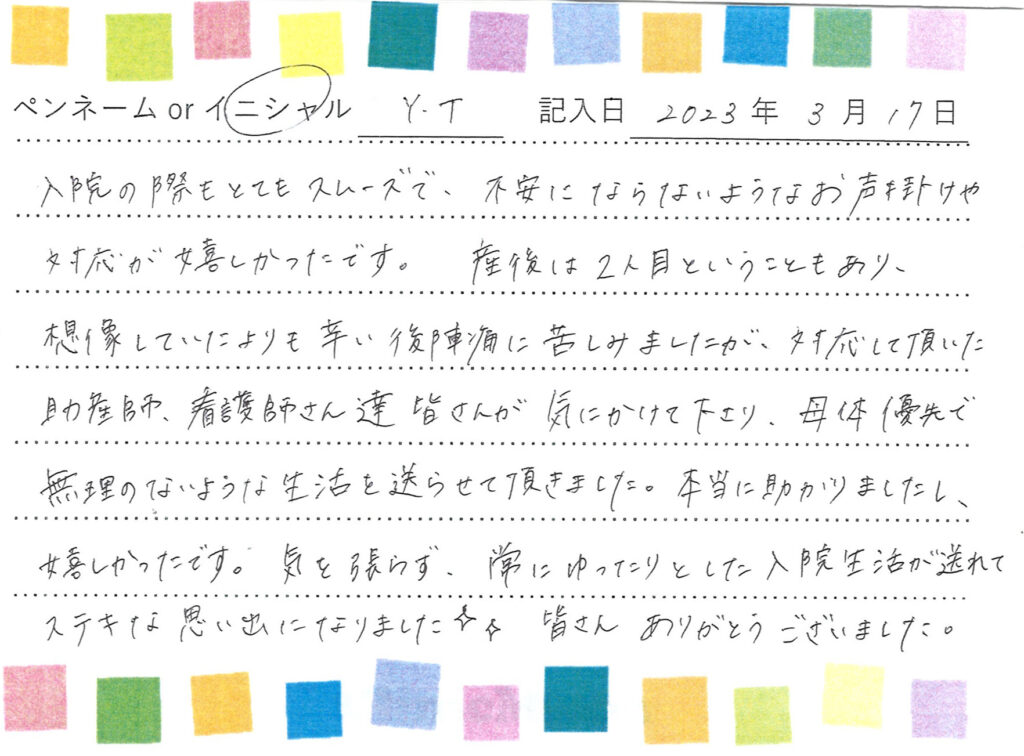 ペンネーム or イニシャル Y.T 記入日 2023年 3月 17日
入院の際もとてもスムーズで、不安にならないようなお声掛けや
対応が嬉しかったです。 産後は2人目ということもあり、
想像していたよりも辛い後陣痛に苦しみましたが、対応して頂いた
助産師、看護師さん達皆さんが気にかけて下さり、母体優先で
無理のないような生活を送らせて頂きました。本当に助かりましたし、
嬉しかったです。気を張らず、常にゆったりとした入院生活が送れて
ステキな思い出になりました 皆さん ありがとうございました。